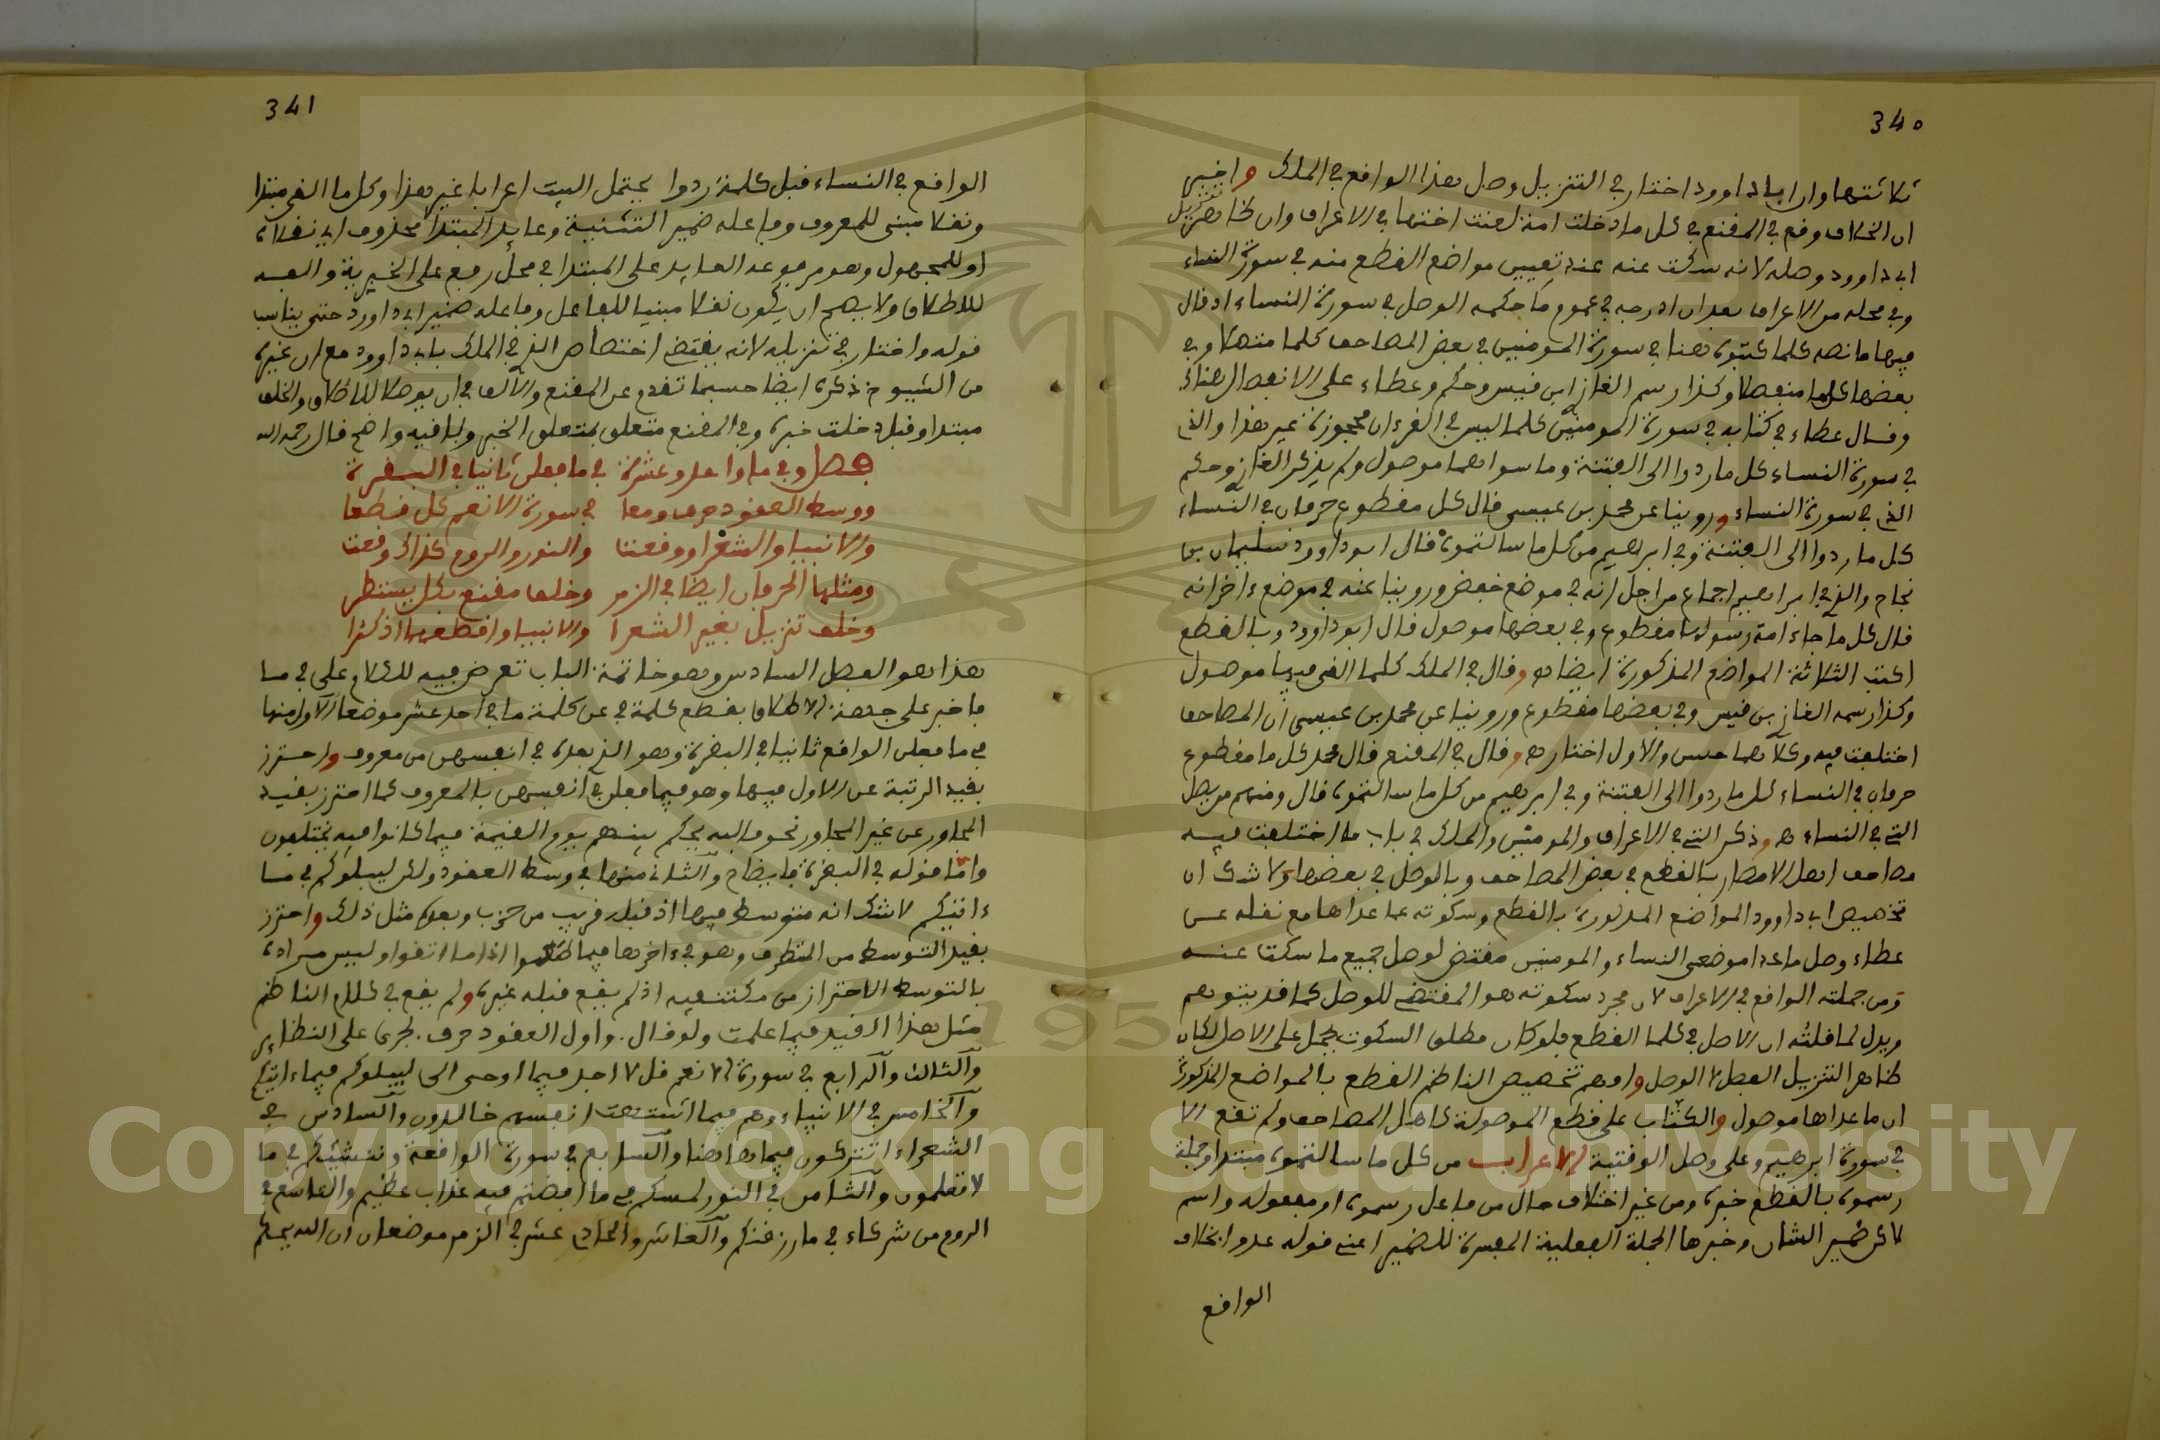 340
ثلاثتها وان ابا داوود اختار في التنزيل وصل هذا الواقع في الملك واخبر
ان الخلاف وقع في المقنع في كل ما دخلت امة لعنت اختها في الاعراف وان ظاهر تنزيل
ابي داوود وصله لانه سكت عنه عند تعيين مواضع القطع منه في سورة النساء
وفي محله من الاعراف بعد ان ادرجه في عموم ما حكمه الوصل في سورة النساء اذ قال
فيها ما نصه كلما كتبوه هنا في سورة المومنين في بعض المصاحف كلما متصلا وفي
بعضها كل ما منفصلا وكذا رسم الغاز ابن قيس وحكم وعطاء على الانفصال هناك
وقال عطاء في كتابه في سورة المومنين كلما ليس في القرءان محجوزة غير هذا والذي
في سورة النساء كل ما ردوا الى الفتنة وما سواهما موصول ولم يذكر الغاز وحكم
الذي في سورة النساء وروينا عن محمد بن عيسى قال كل مقطوع حرفان في النساء
كل ما ردوا الى الفتنة وفي ابرهيم من كل ما سالتموه قال ابو داوود سليمان بن
نجاح والذي في ابراهيم اجماع من اجل انه في موضع خفض وروينا عنه في موضع ءاخر انه
قال كل ما جاء امة رسولها مقطوع وفي بعضها موصول قال ابو داوود وبالقطع
اكتب الثلاثة المواضع المذكورة ايضا ه وقال في الملك كلما القي فيها موصول
وكذا رسمه الغاز بن قيس وفي بعضها مقطوع وروينا عن محمد بن عيسى ان المصاحف
اختلفت فيه وكلاهما حسن والاول اختار ه وقال في المقنع قال محمد كل ما مقطوع
حرفان في النساء كل ما ردوا الى الفتنة وفي ابرهيم من كل ما سالتموه قال ومنهم من يصل
التي في النساء ه وذكر التي في الاعراف والمومنين والملك في باب ما اختلفت فيه
مصاحف اهل الامصار بالقطع في بعض المصاحف وبالوصل في بعضها ولا شك ان
تخصيص ابي داوود المواضع المذكورة بالقطع وسكوته عما عداها مع نقله عن
عطاء وصل ما عدا موضعي النساء والمومنين مقتض لوصل جميع ما سكت عنه
ومن جملته الواقع في الاعراف لا ن مجرد سكوته هو المقتضي للوصل كما قد يتوهم
ويدل لما قلته ان الاصل في كلما القطع فلو كان مطلق السكوت يحمل على الاصل لكان
ظاهر التنزيل الفصل لا الوصل واوهم تخصيص الناظم القطع بالمواضع المذكورة
ان ما عداها موصول والكتاب على قطع الموصولة كاهل المصاحف ولم تقع الا
في سورة ابرهيم وعلى وصل الوقتية الاعراب من كل ما سالتموه مبتدا وجملة
رسموه بالقطع خبره ومن غير اختلاف حال من فاعل رسموه او مفعوله واسم
لاكن ضمير الشان وخبرها الجملة الفعلية المفسرة للضمير اعني قوله عدوا بخلاف
الواقع
341
الواقع في النساء قبل كلمة ردوا يحتمل البيت اعرابا غير هذا وكل ما القي مبتدا
ونقلا مبني للمعروف وفاعله ضمير التثنية وعايد المبتدا محذوف اي نقلاه
او للمجهول وهو مرفوعه العايد على المبتدا في محل رفع على الخبرية والفه
للاطلاق ولا يصح ان يكون نقلا مبنيا للفاعل وفاعله ضمير ابي داوود حتى يناسب
قوله واختار في تنزيله لانه يقتضي اختصاص الذي في الملك بابي داوود مع ان غيره
من الشيوخ ذكره ايضا حسبما تقدم عن المقنع والالف في ان يوصلا للاطلاق والخلف
مبتدا وقبل دخلت خبره وفي المقنع متعلق بمتعلق الخبر وباقيه واضح قال رحمه الله
فصل وفي ما واحد وعشرة في ما فعلن ثانيا في البقرة
ووسط العقود حرف ومعا في سورة الانعم كل قطعا
والانبيا والشعرا ووقعت والنور والروم كذاك وقعت
ومثلها الحرفان ايضا في الزمر وخلف مقنع بكل يستطر
وخلف تنزيل بغير الشعرا والانبيا واقطعهما اذ كثرا
هذا هو الفصل السادس وهو خاتمة الباب تعرض فيه للكلام على في ما
فاخبر على جهة الاطلاق بقطع كلمة في عن كلمة ما في احد عشر موضعا الاول منها
في ما فعلن الواقع ثانيا في البقرة وهو الذي بعده في انفسهن من معروف واحترز
بقيد الرتبة عن الاول فيها وهو فيما فعلن في انفسهن بالمعروف كما احترز بقيد
المجاور عن غير المجاور نحو فالله يحكم بينهم يوم القيمة فيما كانوا فيه يختلفون
واما قوله في البقرة فايضاح والثاني منها في وسط العقود ولكن ليبلوكم في ما
ءاتيكم لا شك انه متوسط فيها اذ قبله قريب من حزب وبعده مثل ذلك واحترز
بقيد التوسط من المتطرف وهو في ءاخرها فيما طعموا اذا ما اتقوا وليس مراده
بالتوسط الاحتراز من مكتنفيه اذ لم يقع قبله غيره ولم يقع في كلام الناظم
مثل هذا القيد فيما علمت ولو قال. واول العقود حرف. لجرى على النظاير
والثالث والرابع في سورة الانعم قل لا اجد فيما اوحى الي ليبلوكم فيما ءاتيكم
والخامس في الانبياء وهم فيما اشتهت انفسهم خالدون والسادس في
الشعراء اتتركون فيما هاهنا والسابع في سورة الواقعة وننشئكم في ما
لا تعلمون والثامن في النور لمسكم في ما افضتم فيه عذاب عظيم والتاسع في
الروم من شركاء في ما رزقنكم والعاشر والحادي عشر في الزمر موضعان ان الله يحكم